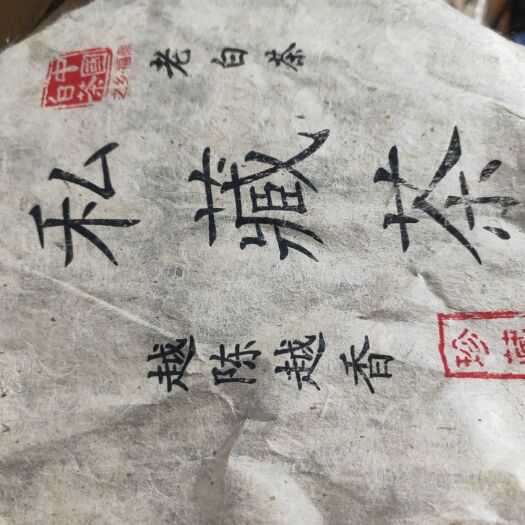 中國白茶
之乡福鼎
老白茶
私藏茶
越陈越香
珍藏